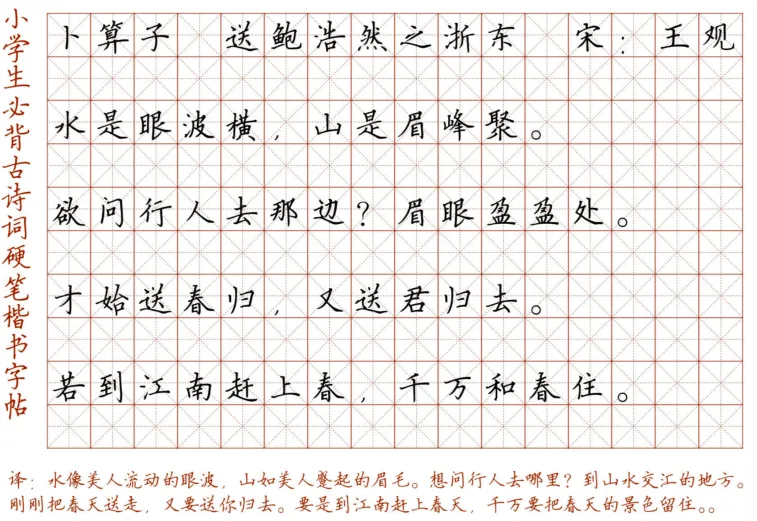 小学生必背古诗词硬笔楷书字帖
卜算子 送鲍浩然之浙东 宋：王观
水是眼波横，山是眉峰聚。
欲问行人去那边？眉眼盈盈处。
才始送春归，又送君归去。
若到江南赶上春，千万和春住。
译：水像美人流动的眼波，山如美人蹙起的眉毛。想问行人去哪里？到山水交汇的地方。
刚刚把春天送走，又要送你归去。要是到江南赶上春天，千万要把春天的景色留住。。